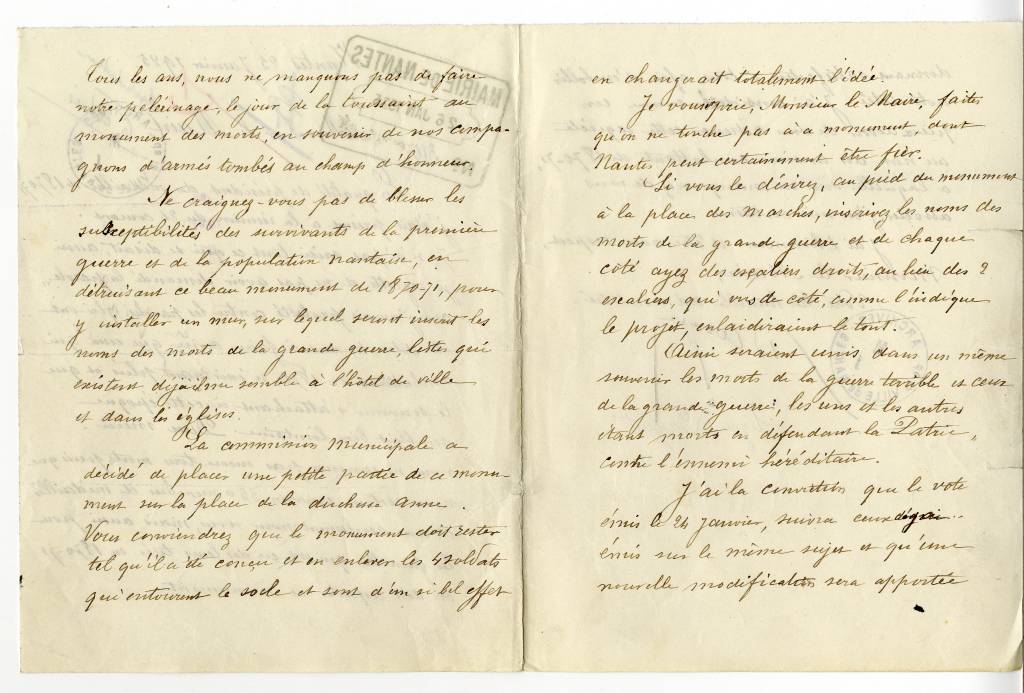 Tous les ans, nous ne manquons pas de faire
notre pélérinage, le jour de la toussaint au
monument des morts, en souvenir de nos compa-
gnons d'armes tombés au champ d'honneur.
Ne craignez-vous pas de blesser les
susceptibilités des survivants de la première
guerre et de la population nantaise, en
détruisant ce beau monument de 1870-71, pour
y installer un mur, sur lequel seront inscrit les
noms des morts de la grande guerre, listes qui
existent déjà il me semble à l'hôtel de ville
et dans les églises.
La commission municipale a
décidé de placer une petite partie de ce monu-
ment sur la place de la duchesse anne.
Vous conviendrez que le monument doit rester
tel qu'il a été conçu et en enlever les 4 soldats
qui entourent le socle et sont d'un si bel effet
en changerait totalement l'idée.
Je vous prie, Monsieur le Maire, faites
qu'on ne touche pas à a monument, dont
Nantes peut certainement être fier.
Si vous le désirez, au pied du monument
à la place des marches, inscrivez les noms des
morts de la grande guerre et de chaque
côté ayez des escaliers droits, au lieu des 2
escaliers, qui vus de côté, comme l'indique
le projet, enlaidiraient le tout.
Ainsi seraient unis dans un même
souvenir les morts de la guerre terrible et ceux
de la grande guerre, les uns et les autres
étant morts en défendant la Patrie,
contre l'ennemi héréditaire.
J'ai la conviction que le vote
émis le 24 Janvier, suivra ceux déjà
émis sur le même sujet et qu'une
nouvelle modification sera apportée
MAIRIE DE NANTES